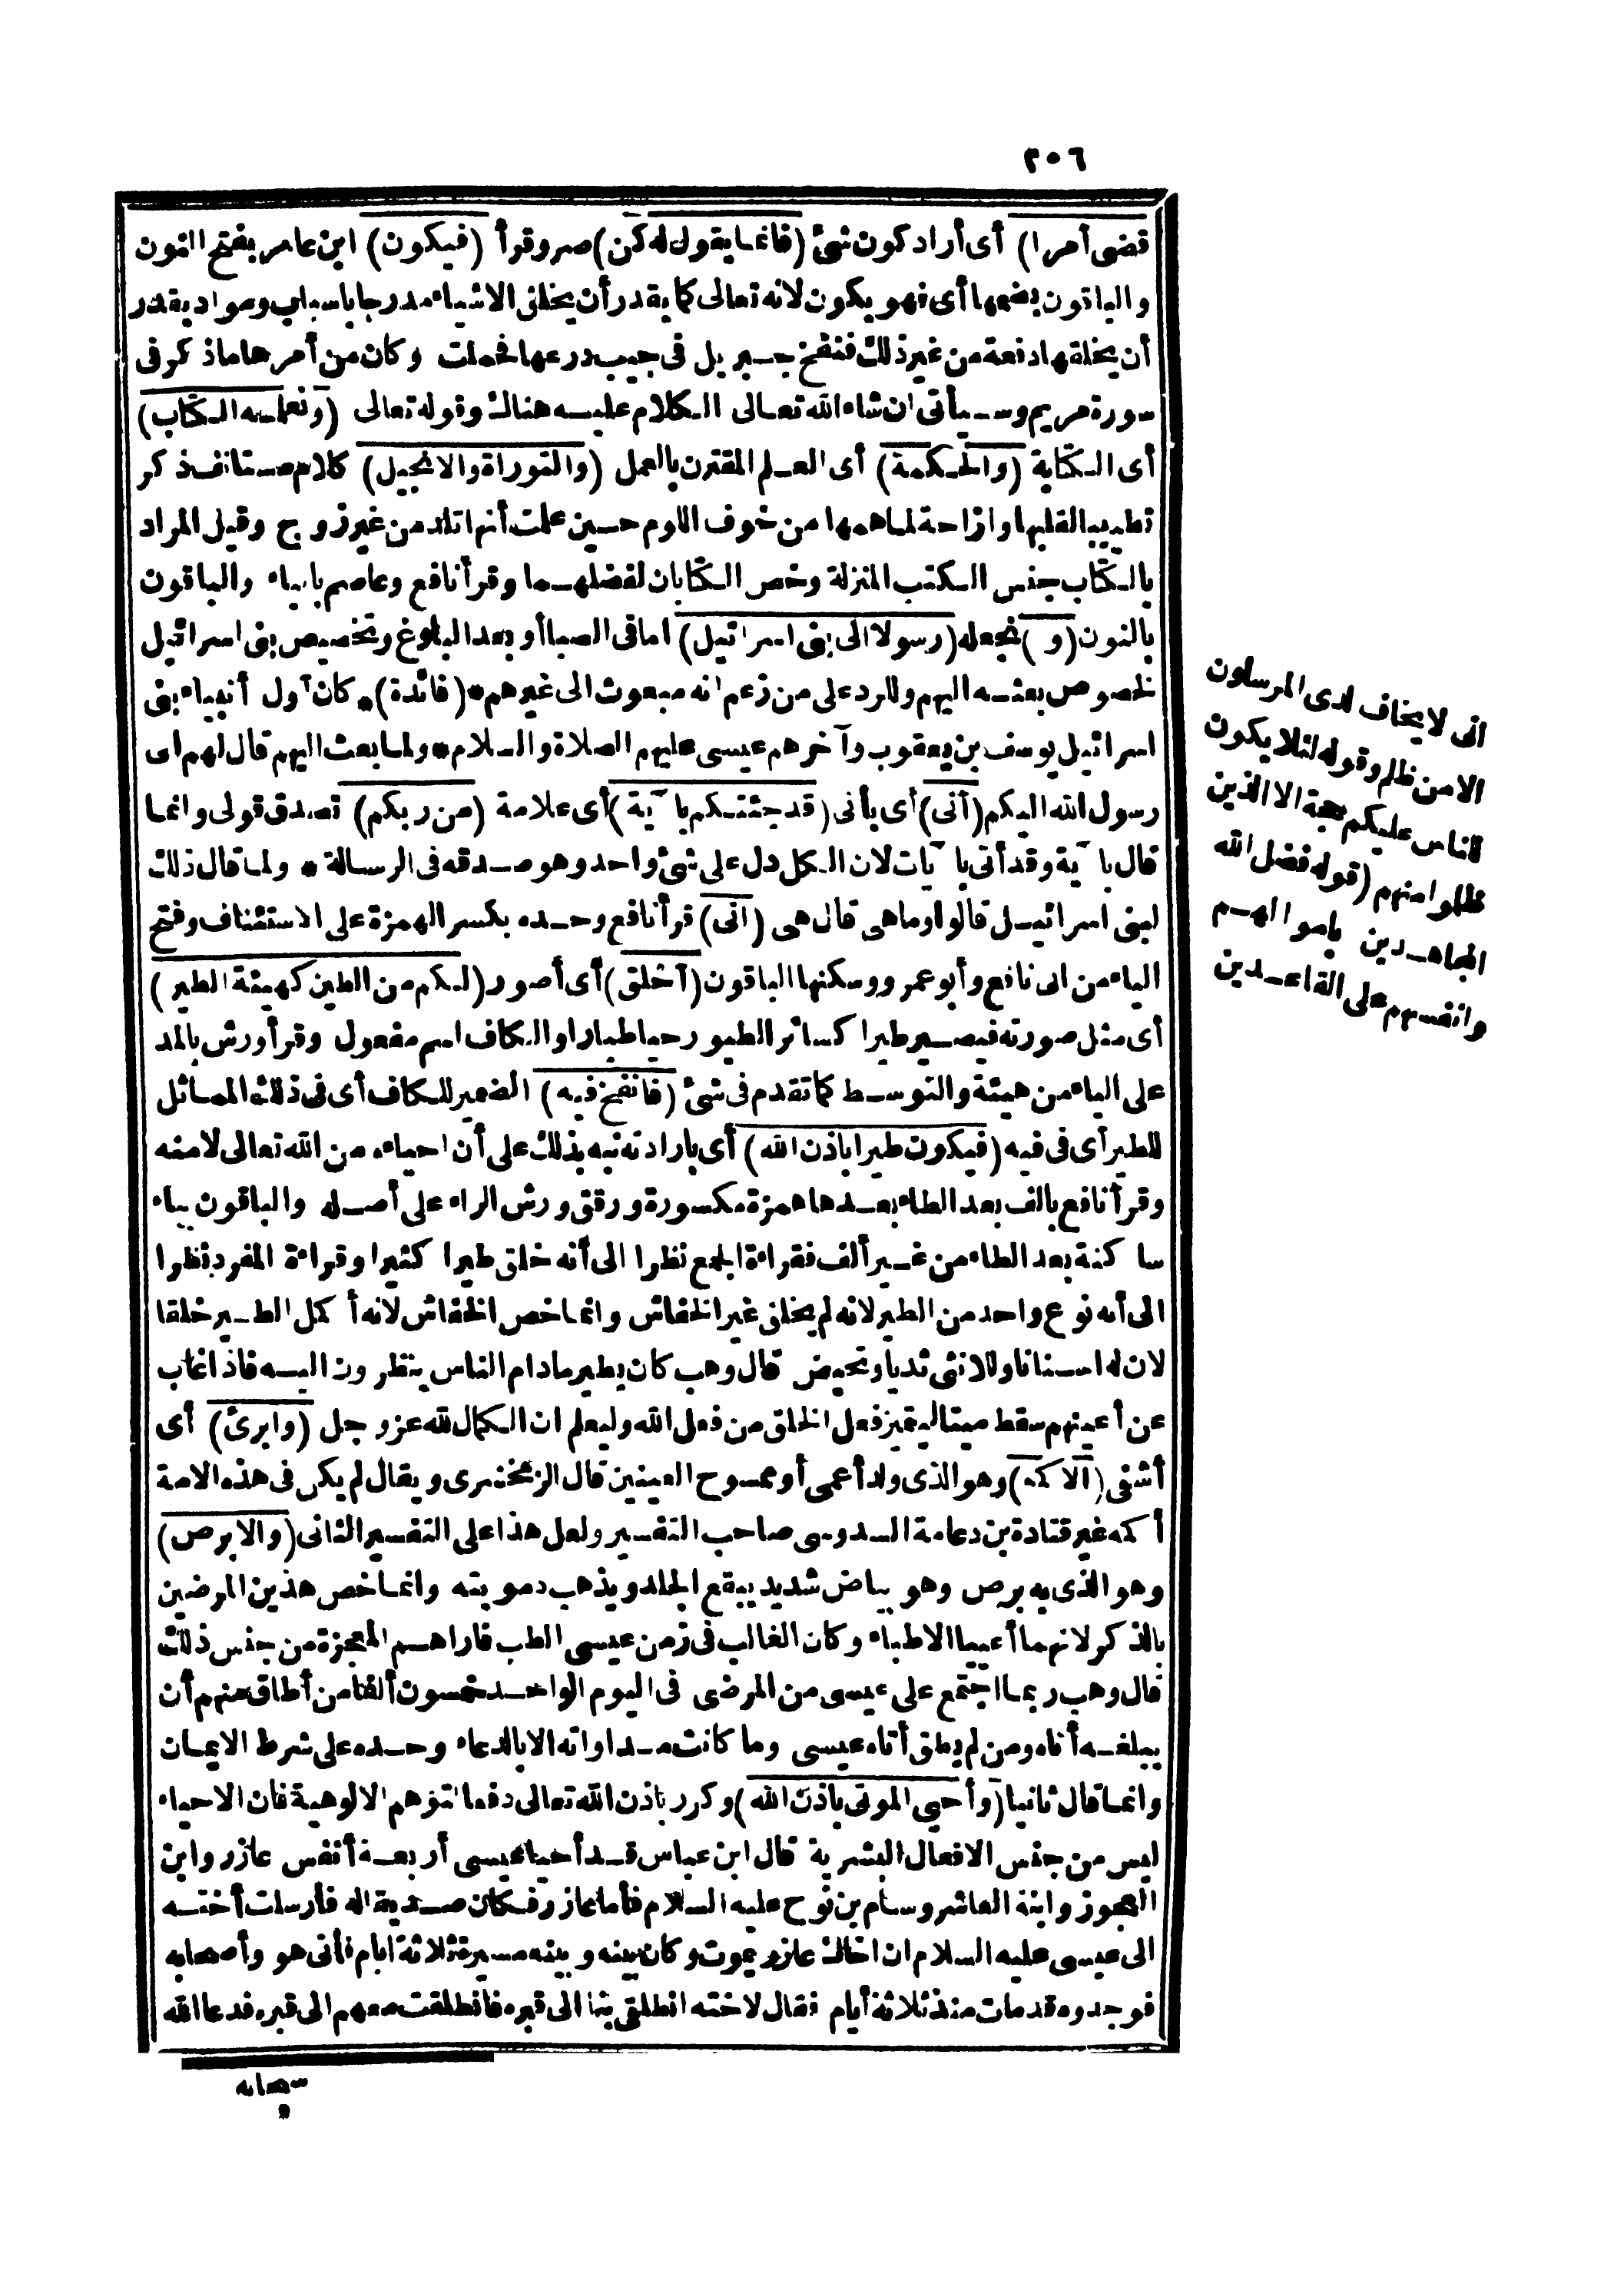 ٢٠٦
قضى أمرا) أى أراد كون شئ (فانما يقول له كن) صر وقرأ (فيكون) ابن عامر بفتح النون
والباقون بضمها أى فهو يكون لانه تعالى كما يقدر أن يخلق الاشياء مدرجا باسباب ومواد يقدر
أن يخلقها دفعة من غير ذلك فنفخ جبريل فى جيب درعها فحملت وكان من أمرها ما ذكر فى
سورة مريم وسيأتى ان شاء الله تعالى الكلام عليه هناك وقوله تعالى (ونعلمه الكتاب)
أى الكتابة (والحكمة) أى العلم المقترن بالعمل (والتوراة والانجيل) كلام مستأنف ذكر
تطييبا لقلبها وازاحة لما همها من خوف اللوم حين علمت أنها تلد من غير زوج وقيل المراد
بالكتاب جنس الكتب المنزلة وخص الكتابان لفضلهما وقرأ نافع وعاصم بالياء والباقون
بالنون (و) نجعله (رسولا الى بنى اسرائيل) اما فى الصبا أو بعد البلوغ وتخصيص بنى اسرائيل
لخصوص بعثه اليهم وللرد على من زعم انه مبعوث الى غيرهم * (فائدة) * كان أول أنبياء بنى
اسرائيل يوسف بن يعقوب وآخرهم عيسى عليهم الصلاة والسلام * ولما بعث اليهم قال لهم انى
رسول الله اليكم (أنى) أى بأنى (قد جئتكم بآية) أى علامة (من ربكم) تصدق قولى وانما
قال بآية وقد أتى بآيات لان الكل دل على شئ واحد وهو صدقه فى الرسالة * ولما قال ذلك
لبنى اسرائيل قالوا وما هى قال هى (انى) قرأ نافع وحده بكسر الهمزة على الاستئناف وفتح
الياء من انى نافع وأبو عمرو وسكنها الباقون (أخلق) أى أصور (لكم من الطين كهيئة الطير)
أى مثل صورته فيصير طيرا كسائر الطيور حيا طيارا والكاف اسم مفعول وقرأ ورش بالمد
على الياء من هيئة والتوسط كما تقدم فى شئ (فانفخ فيه) الضمير للكاف أى فى ذلك المماثل
للطير أى فى فيه (فيكون طيرا باذن الله) أى بارادته نبه بذلك على أن احياءه من الله تعالى لا منه
وقرأ نافع بالف بعد الطاء بعدها همزة مكسورة ورقق ورش الراء على أصله والباقون بياء
ساكنة بعد الطاء من غير ألف فقراءة الجمع نظرا الى أنه خلق طيرا كثيرا وقراءة المفرد نظرا
الى أنه نوع واحد من الطير لانه لم يخلق غير الخفاش وانما خص الخفاش لانه أكمل الطير خلقا
لان له اسنانا وللانثى ثديا وتحيض قال وهب كان يطير ما دام الناس ينظرون اليه فاذا غاب
عن أعينهم سقط ميتا ليتميز فعل الخلق من فعل الله وليعلم ان الكمال لله عز وجل (وابرئ) أى
أشفى (الاكمه) وهو الذى ولد أعمى أو ممسوح العينين قال الزمخشرى ويقال لم يكن فى هذه الامة
أكمه غير قتادة بن دعامة السدوسى صاحب التفسير ولعل هذا على التفسير الثانى (والابرص)
وهو الذى به برص وهو بياض شديد يبقع الجلد ويذهب دمويته وانما خص هذين المرضين
بالذكر لانهما أعييا الاطباء وكان الغالب فى زمن عيسى الطب فاراهم المعجزة من جنس ذلك
قال وهب ربما اجتمع على عيسى من المرضى فى اليوم الواحد خمسون ألفا من أطاق منهم أن
يبلغه أتاه ومن لم يطق أتاه عيسى وما كانت مداواته الا بالدعاء وحده على شرط الايمان
وانما قال ثانيا (وأحيى الموتى باذن الله) وكرر باذن الله تعالى دفعا لتوهم الالوهية فان الاحياء
ليس من جنس الافعال البشرية قال ابن عباس قد أحيا عيسى أربعة أنفس عازر وابن
العجوز وابنة العاشر وسام بن نوح عليه السلام فأما عازر فكان صديقا له فأرسلت أخته
الى عيسى عليه السلام ان اخاك عازر يموت وكان بينه وبينه مسيرة ثلاثة ايام فأتى هو وأصحابه
فوجدوه قد مات منذ ثلاثة أيام فقال لاخته انطلقى بنا الى قبره فانطلقت معهم الى قبره فدعا الله
انى لا يخاف لدى المرسلون
الا من ظلم وقوله لئلا يكون
للناس عليكم حجة الا الذين
ظلموا منهم (قوله فضل الله
المجاهدين باموالهم
وانفسهم على القاعدين